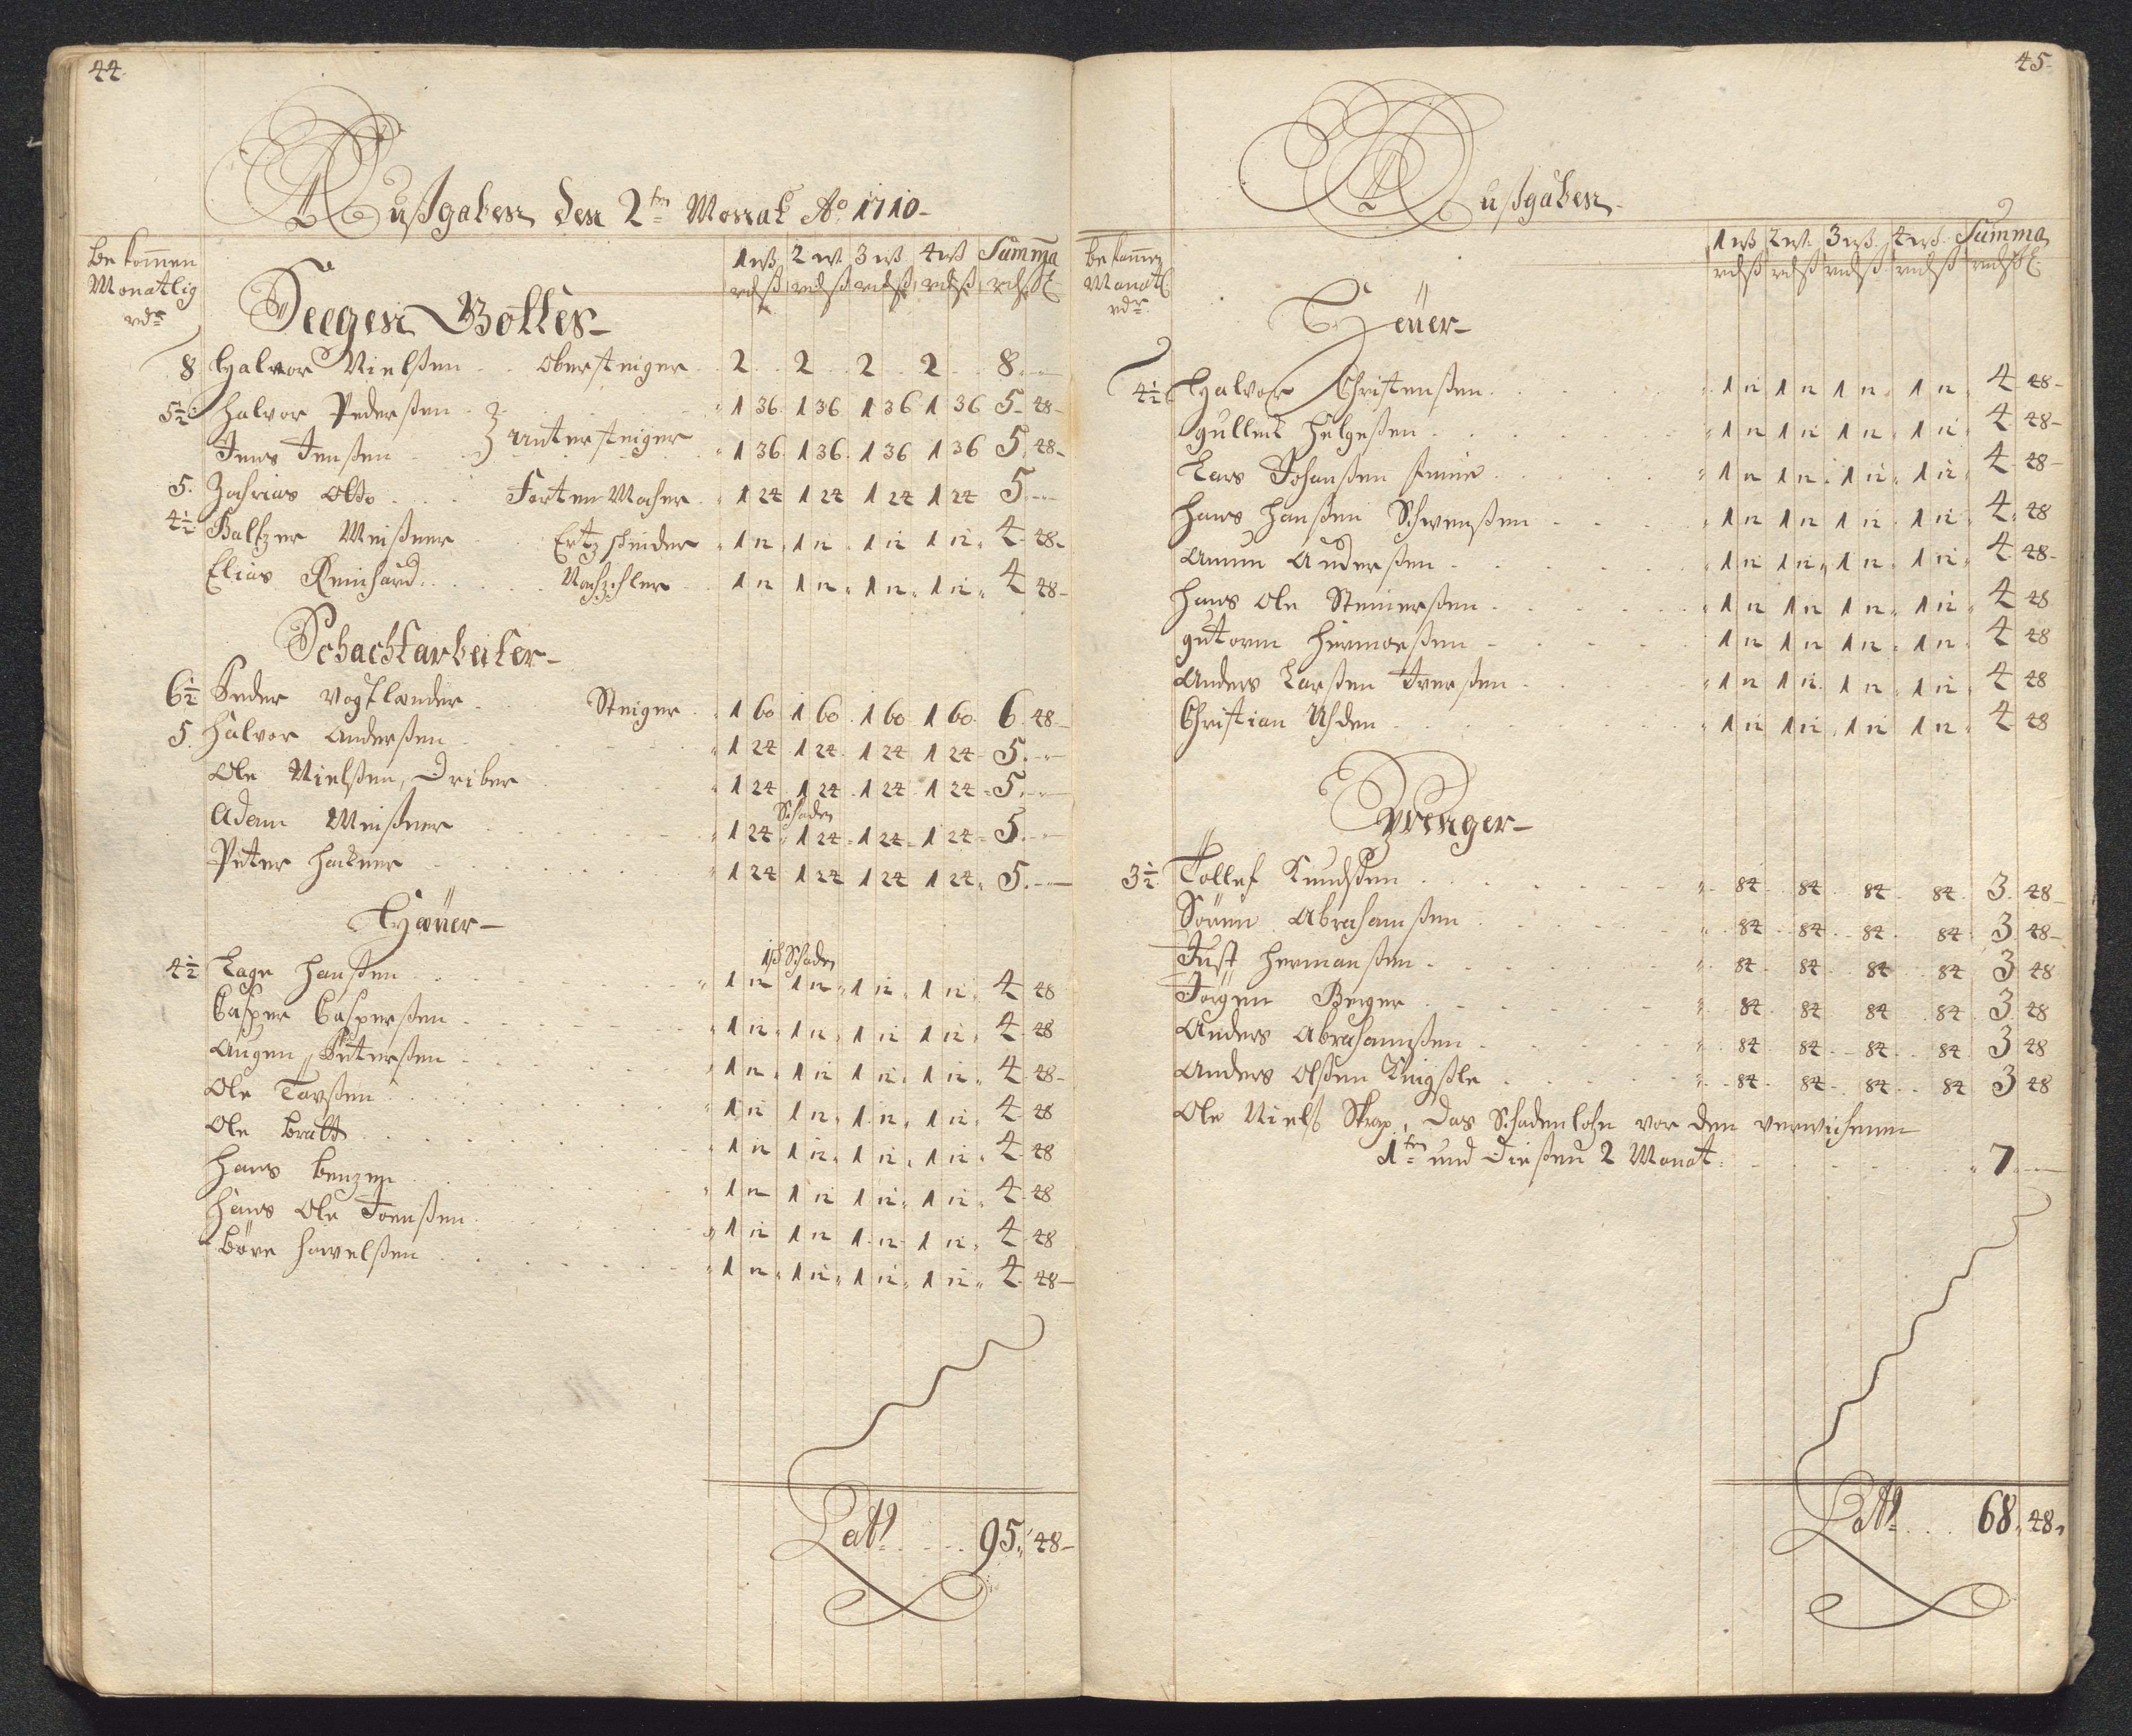 44.
Außgaben den 2ten Monat Ao 1710
Bekom̄en
Monatlig
rdr
1 wß 2 w 3 wß 4 wß Sum̄a
rdß rdß rdß rdß rdß
Seegen Gottes
8 Halvor Nielßen Obersteiger 2 2 2 2 8
5½ Halvor Pederßen 1 36 1 36 1 36 1 36 5 48
Untersteiger
Jens Jenßen 1 36 1 36 1 36 1 36 5 48
5 Zachrias Otto 1 24 1 24 1 24 1 24 5
4½ Baltzer Meißner Ertzscheider 1 12 1 12 1 12 1 12 4 48
Elias Reinhard Nachzehler 1 12 1 12 1 12 1 12 4 48
Schachtarbeiter
6½ Peder Vogtlænder Steiger 1 60 1 60 1 60 1 60 6 48
5 Halvor Anderßen 1 24 1 24 1 24 1 24 5
Ole Nielßen, Driber 1 24 1 24 1 24 1 24 5
Schaden
Adam Meißner 1 24 1 24 1 24 1 24 5
Peter Hackner 1 24 1 24 1 24 1 24 5
Häuer
4½ Lage Hanßen 1 12 1 12 1 12 1 12 4 48
Schaden
Casper Casperßen 1 12 1 12 1 12 1 12 4 48
Augen Peterßen 1 12 1 12 1 12 1 12 4 48
Ole Torßen 1 12 1 12 1 12 1 12 4 48
Ole Bratt 1 12 1 12 1 12 1 12 4 48
Hans Benzen 1 12 1 12 1 12 1 12 4 48
Hans Ole Joenßen 1 12 1 12 1 12 1 12 4 48
Böre Hawelßen 1 12 1 12 1 12 1 12 4 48
Latt 95 48
45
Außgaben
Bekom̄en
Monatl
rdr
1 wß 2 w 3 wß 4 wß Sum̄a
rdß rdß rdß rdß rdß
Heüer
4½ Halvor Christenßen 1 12 1 12 1 12 1 12 4 48
Gullick Helgeßen 1 12 1 12 1 12 1 12 4 48
Lars Johanßen 1 12 1 12 1 12 1 12 4 48
Hans Hanßen Schwenßen 1 12 1 12 1 12 1 12 4 48
Amun Anderßen 1 12 1 12 1 12 1 12 4 48
Hans Ole Steinerßen 1 12 1 12 1 12 1 12 4 48
Gutorm Hermoeßen 1 12 1 12 1 12 1 12 4 48
Anders Larßen Iverßen 1 12 1 12 1 12 1 12 4 48
Christian Uhden 1 12 1 12 1 12 1 12 4 48
Zwenger
3½ Tollef Knudßen 84 84 84 84 3 48
Sören Abrahamßen 84 84 84 84 3 48
Just Hermanßen 84 84 84 84 3 48
Jörgen Berger 84 84 84 84 3 48
Anders Abrahamßen 84 84 84 84 3 48
Anders Olßen 84 84 84 84 3 48
Ole Niels Skrap, das Schadenlohn vor den verwichenen
1ten und dießen 2 Monat 7
Latt 68 48